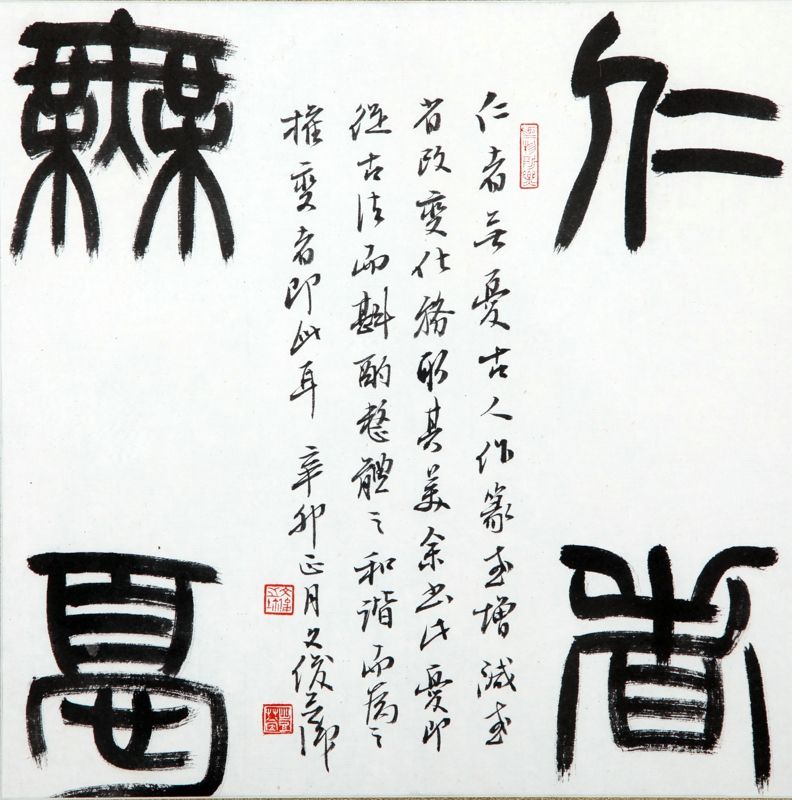 仁者
無憂
仁者无憂古人作篆或增減或
省改變化務取其美余書此憂即
從古法而斟酌整體之和諧而為之
權變者即此耳 辛卯正月文俊